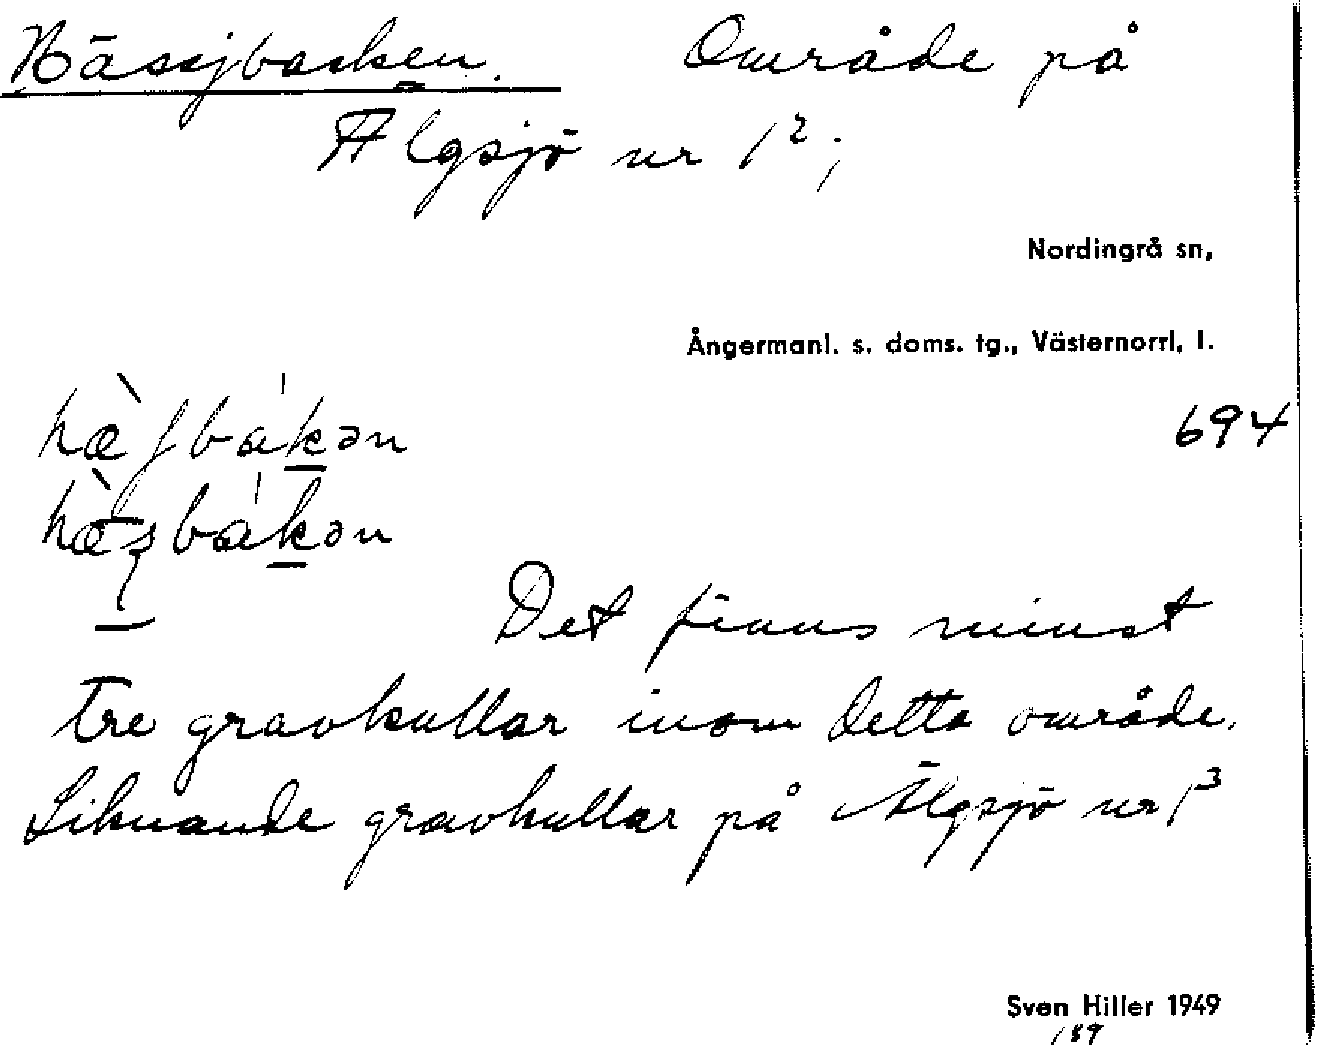 Hässjbacken. Område på
Älgsjö nr 1²;
Nordingrå sn,
Ångermanl. s. doms. tg., Västernorrl. l.
hæ̀ʃbákən
694
hæ̀sbákən
Det finns minst
tre gravkullar inom detta område.
Liknande gravkullar på Älgsjö nr 1³
Sven Hiller 1949
159